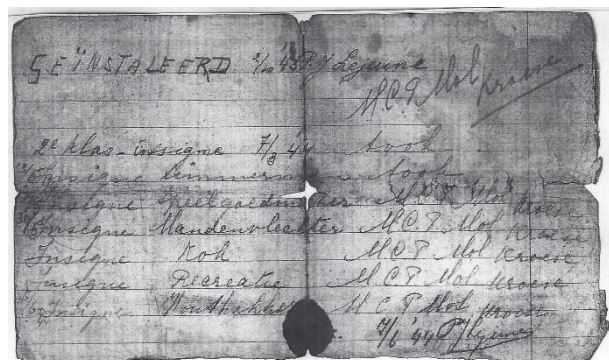 GEÏNSTALEERD 2/10 '43 P.J Lejeune
M.C.P. Mol Kroese
2e klas-insigne 7/3 '44
Insigne Timmerman
Insigne Speelgoedmaker M.C.P. Mol Kroese
Insigne Mandenvlechter M.C.P Mol Kroese
Insigne Kok M C P Mol Kroese
Insigne Recreatie M C P Mol Kroese
Insigne Houthakker M C P Mol Kroese
7/6 '44